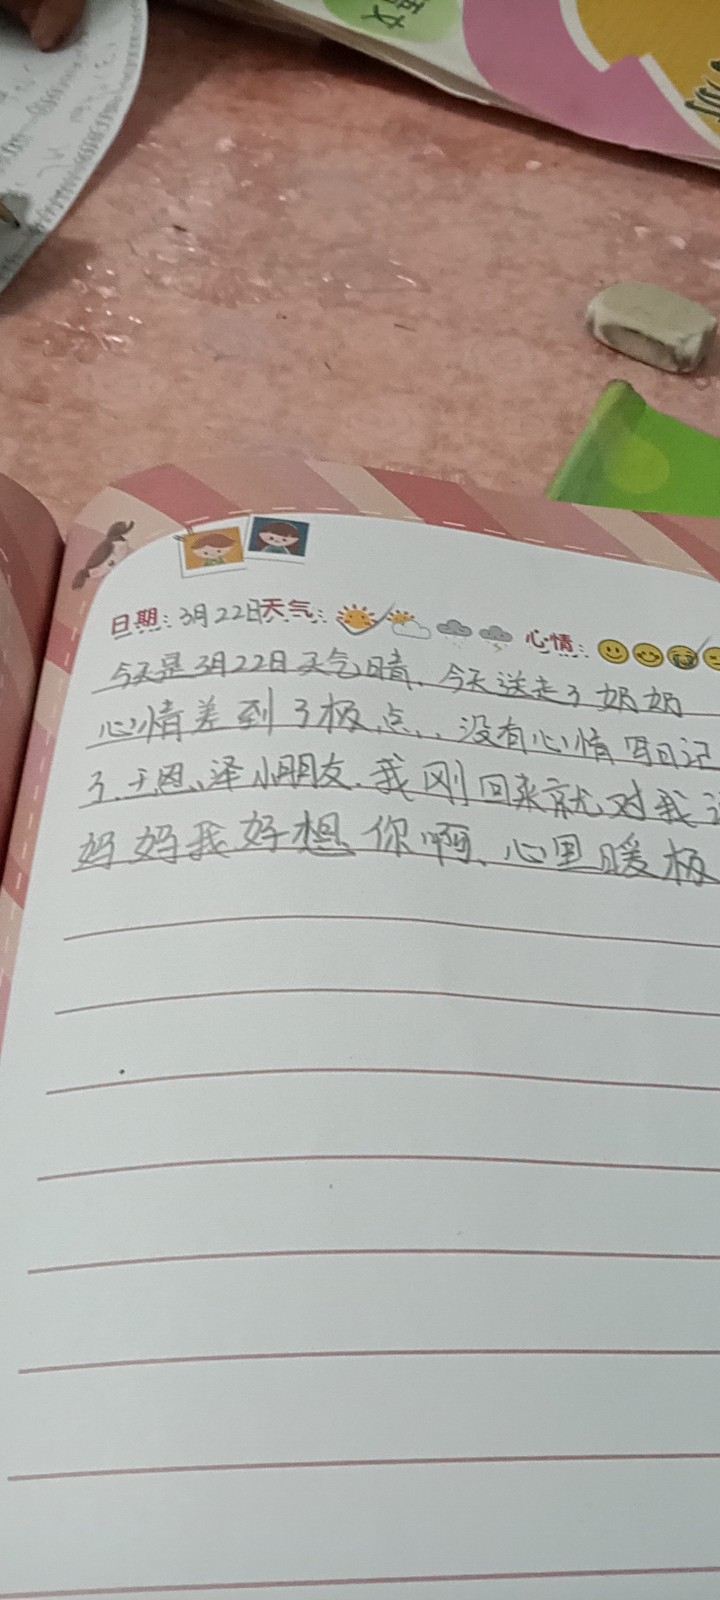 语文
日期：3月22日天气：心情：
今天是3月22日天气晴、今天送走了奶奶
心情差到了极点、、没有心情写日记
了、于恩泽小朋友、我刚回来就对我
妈妈我好想你啊、心里暖极